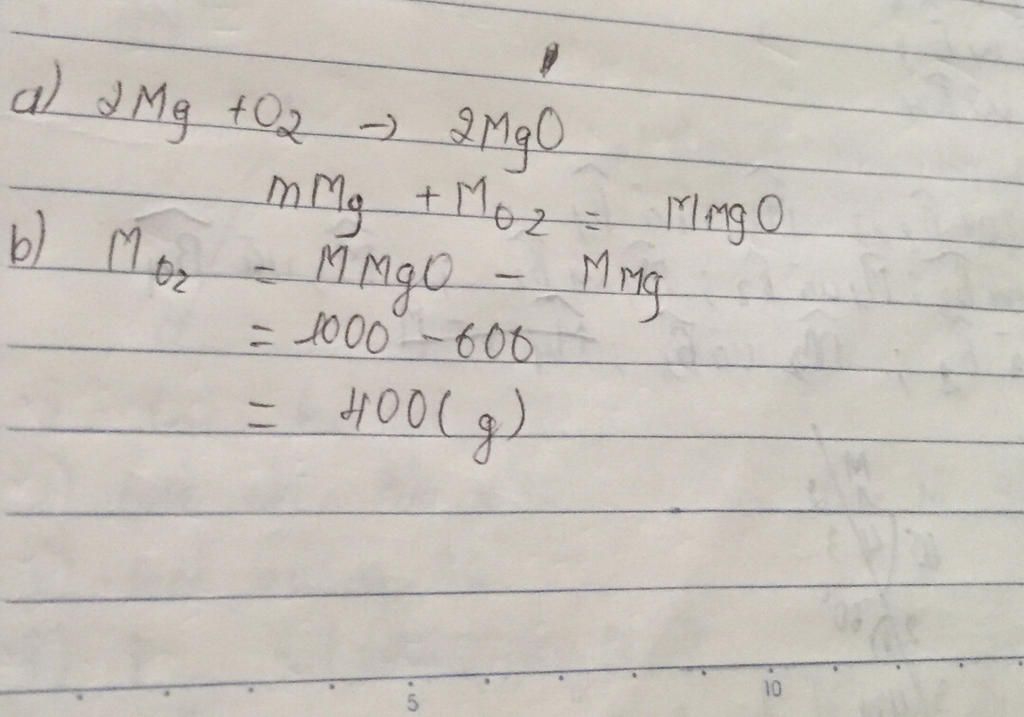 a) 2Mg + O2 → 2MgO
mMg + MO2 = MMgO
b) MO2 = MMgO - MMg
= 1000 - 600
= 400 (g)
5 10